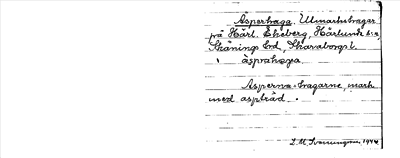 Asperhaga. Utmarkshagar
på Härl. Ekeberg, Härlunda s:n,
Skånings hd, Skaraborgs l.
äsprahaga
Asperna-hagarne, mark
med aspträd.
1944